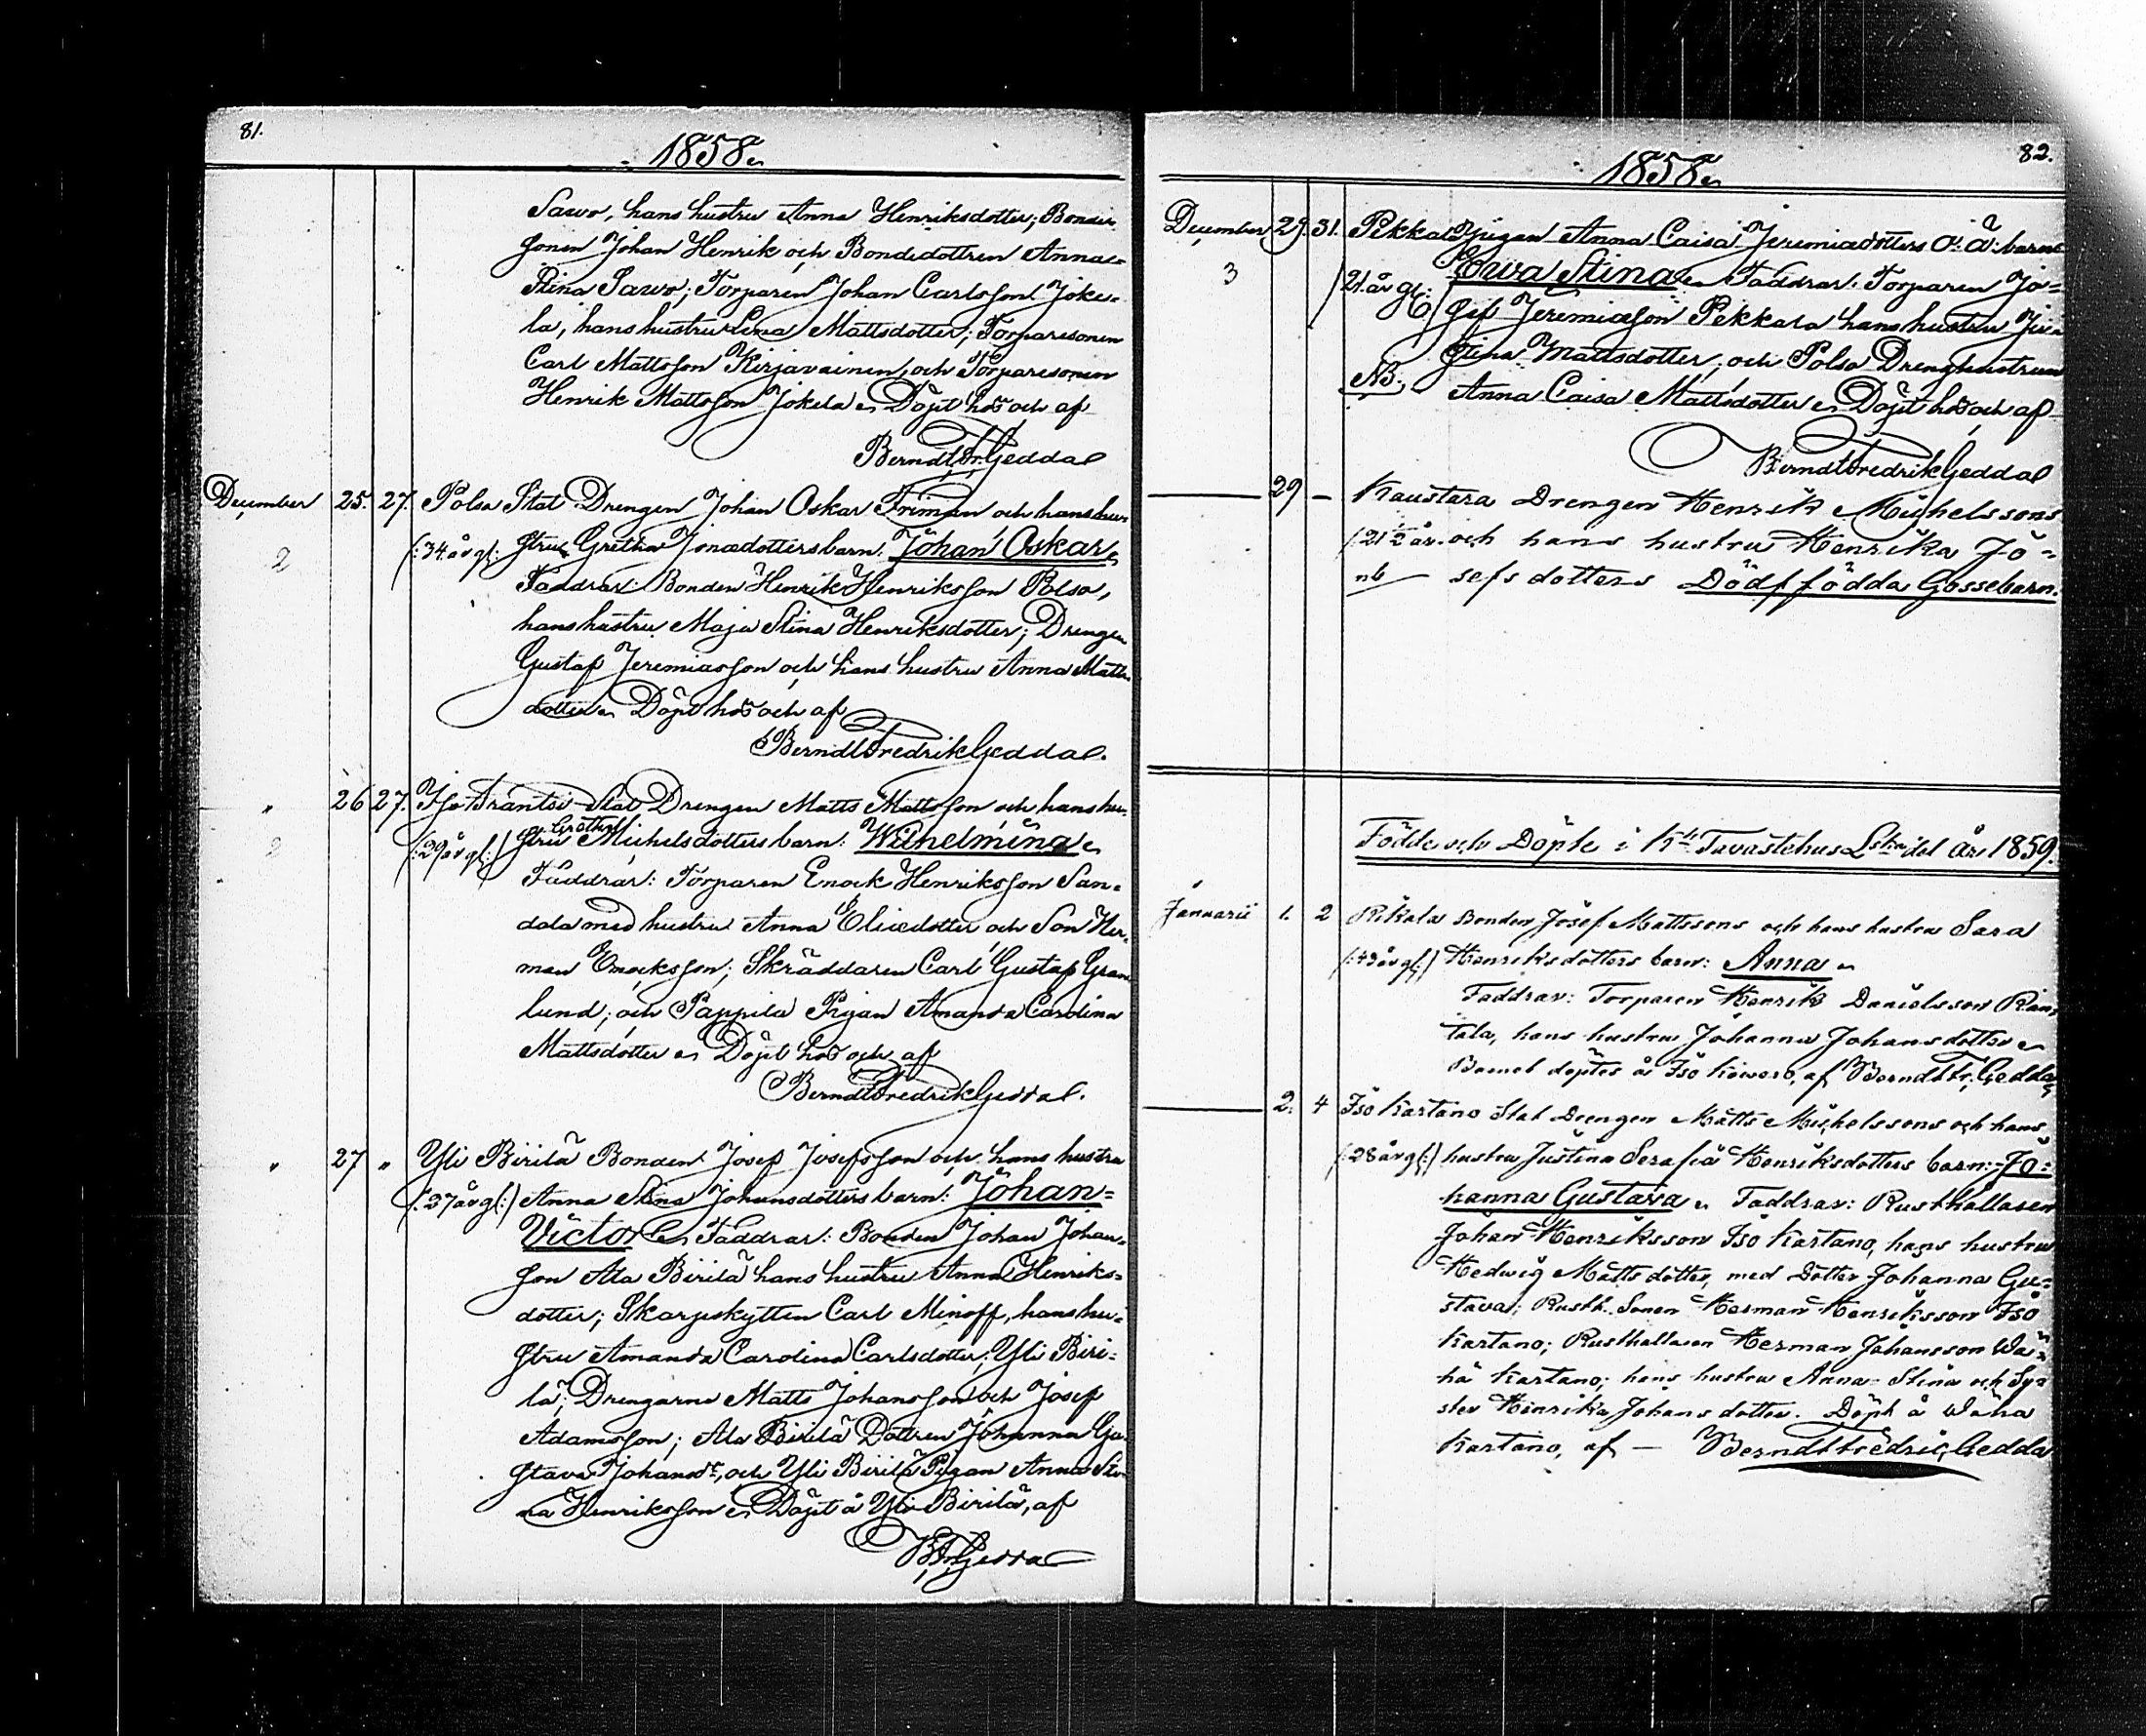 81.
1858.
Sawo, hans hustru Anna Henriksdotter; Bonde-
sonen Johan Henrik och Bondedottren Anna
Stina Sawo; Torparen Johan Carlsson Joke-
la, hans hustru Lena Mattsdotter; Torparesonen
Carl Mattsson Kirjavainen, och Torparesonen
Henrik Mattsson Jokela. Döpt hos och af
Berndt Fr. Gedda
December 25. 27. Polso Stat Drengen Johan Oskar Friman och hans hu-
2 (: 34 år gl: stru Gretha Jonædotters barn: Johan Oskar
Faddrar: Bonden Henrik Henriksson Polso,
hans hustru Maja Stina Henriksdotter; Drengen
Gustaf Jeremiasson och hans hustru Anna Matts-
dotter. Döpt hos och af
Berndt Fredrik Gedda.
" 26 27. Stat Drengen Matts Mattsson och hans hu-
2 (: 29 år gl :) stru Gretha Michelsdotters barn: Wilhelmina
Faddrar: Torparen Enock Henriksson San-
dala med hustru Anna Eliædotter och Son Her-
man Enocksson; Skräddaren Carl Gustaf Gran-
lund; och Pappila Pigan Amanda Carolina
Mattsdotter. Döpt hos och af
Berndt Fredrik Gedda.
" 27 " Yli Birilä Bonden Josef Josefsson och hans hustru
(: 37 år gl :) Anna Stina Johansdotters barn: Johan
Victor. Faddrar: Bonden Johan Johans-
son Ala Birilä hans hustru Anna Henriks-
dotter; Skarpskytten Carl Minoff, hans hu-
stru Amanda Carolina Carlsdotter; Yli Biri-
lä; Drengarne Matts Johansson och Josef
Adamsson; Ala Birilä Dottren Johanna Gu-
stava Johansdr, och Yli Birilä Pigan Anna Sti-
na Henriksson. Döpt å Yli Birilä, af
B. Fr. Gedda
82.
1858.
December 29. 31. Pekkala Pigan Anna Caisa Jeremiædotters O. Ä. barn
3 (21 år gl: Eva Stina. Faddrar: Torparen Jo-
sef Jeremiæson Pekkala hans hustru
Stina Mattsdotter, och Polso Drenghustrun
NB. Anna Caisa Mattsdotter. Döpt hos och af
Berndt Fredrik Gedda
29 — Kaustara Drengen Henrik Michelssons
(: 21½ år och hans hustru Henrika Jo-
nb sefsdotters Dödfödda Gossebarn.
Födde och Döpte i Kh Tavastehus Lska del År 1859.
Januarii 1. 2 Rikala Bonden Josef Mattssons och hans hustru Sara
(: 43 år gl :) Henriksdotters barn: Anna
Faddrar: Torparen Henrik Danielsson Ran-
tala, hans hustru Johanna Johansdotter
Barnet döptes å Iso Kowero, af Berndt Fr. Gedda
2. 4 Iso Kartano Stat Drengen Matts Michelssons och hans
(: 28 år gl :) hustru Justina Serafia Henriksdotters barn: Jo-
hanna Gustava. Faddrar: Rusthållaren
Johan Henriksson Iso Kartano, hans hustru
Hedwig Mattsdotter, med Dotter Johanna Gu-
stava; Rusth. Sonen Herman Henriksson Iso
Kartano; Rusthållaren Herman Johansson Wä-
hä Kartano; hans hustru Anna Stina och Sy-
ster Henrika Johansdotter. Döpt å Wähä
Kartano, af — Berndt Fredric Gedda